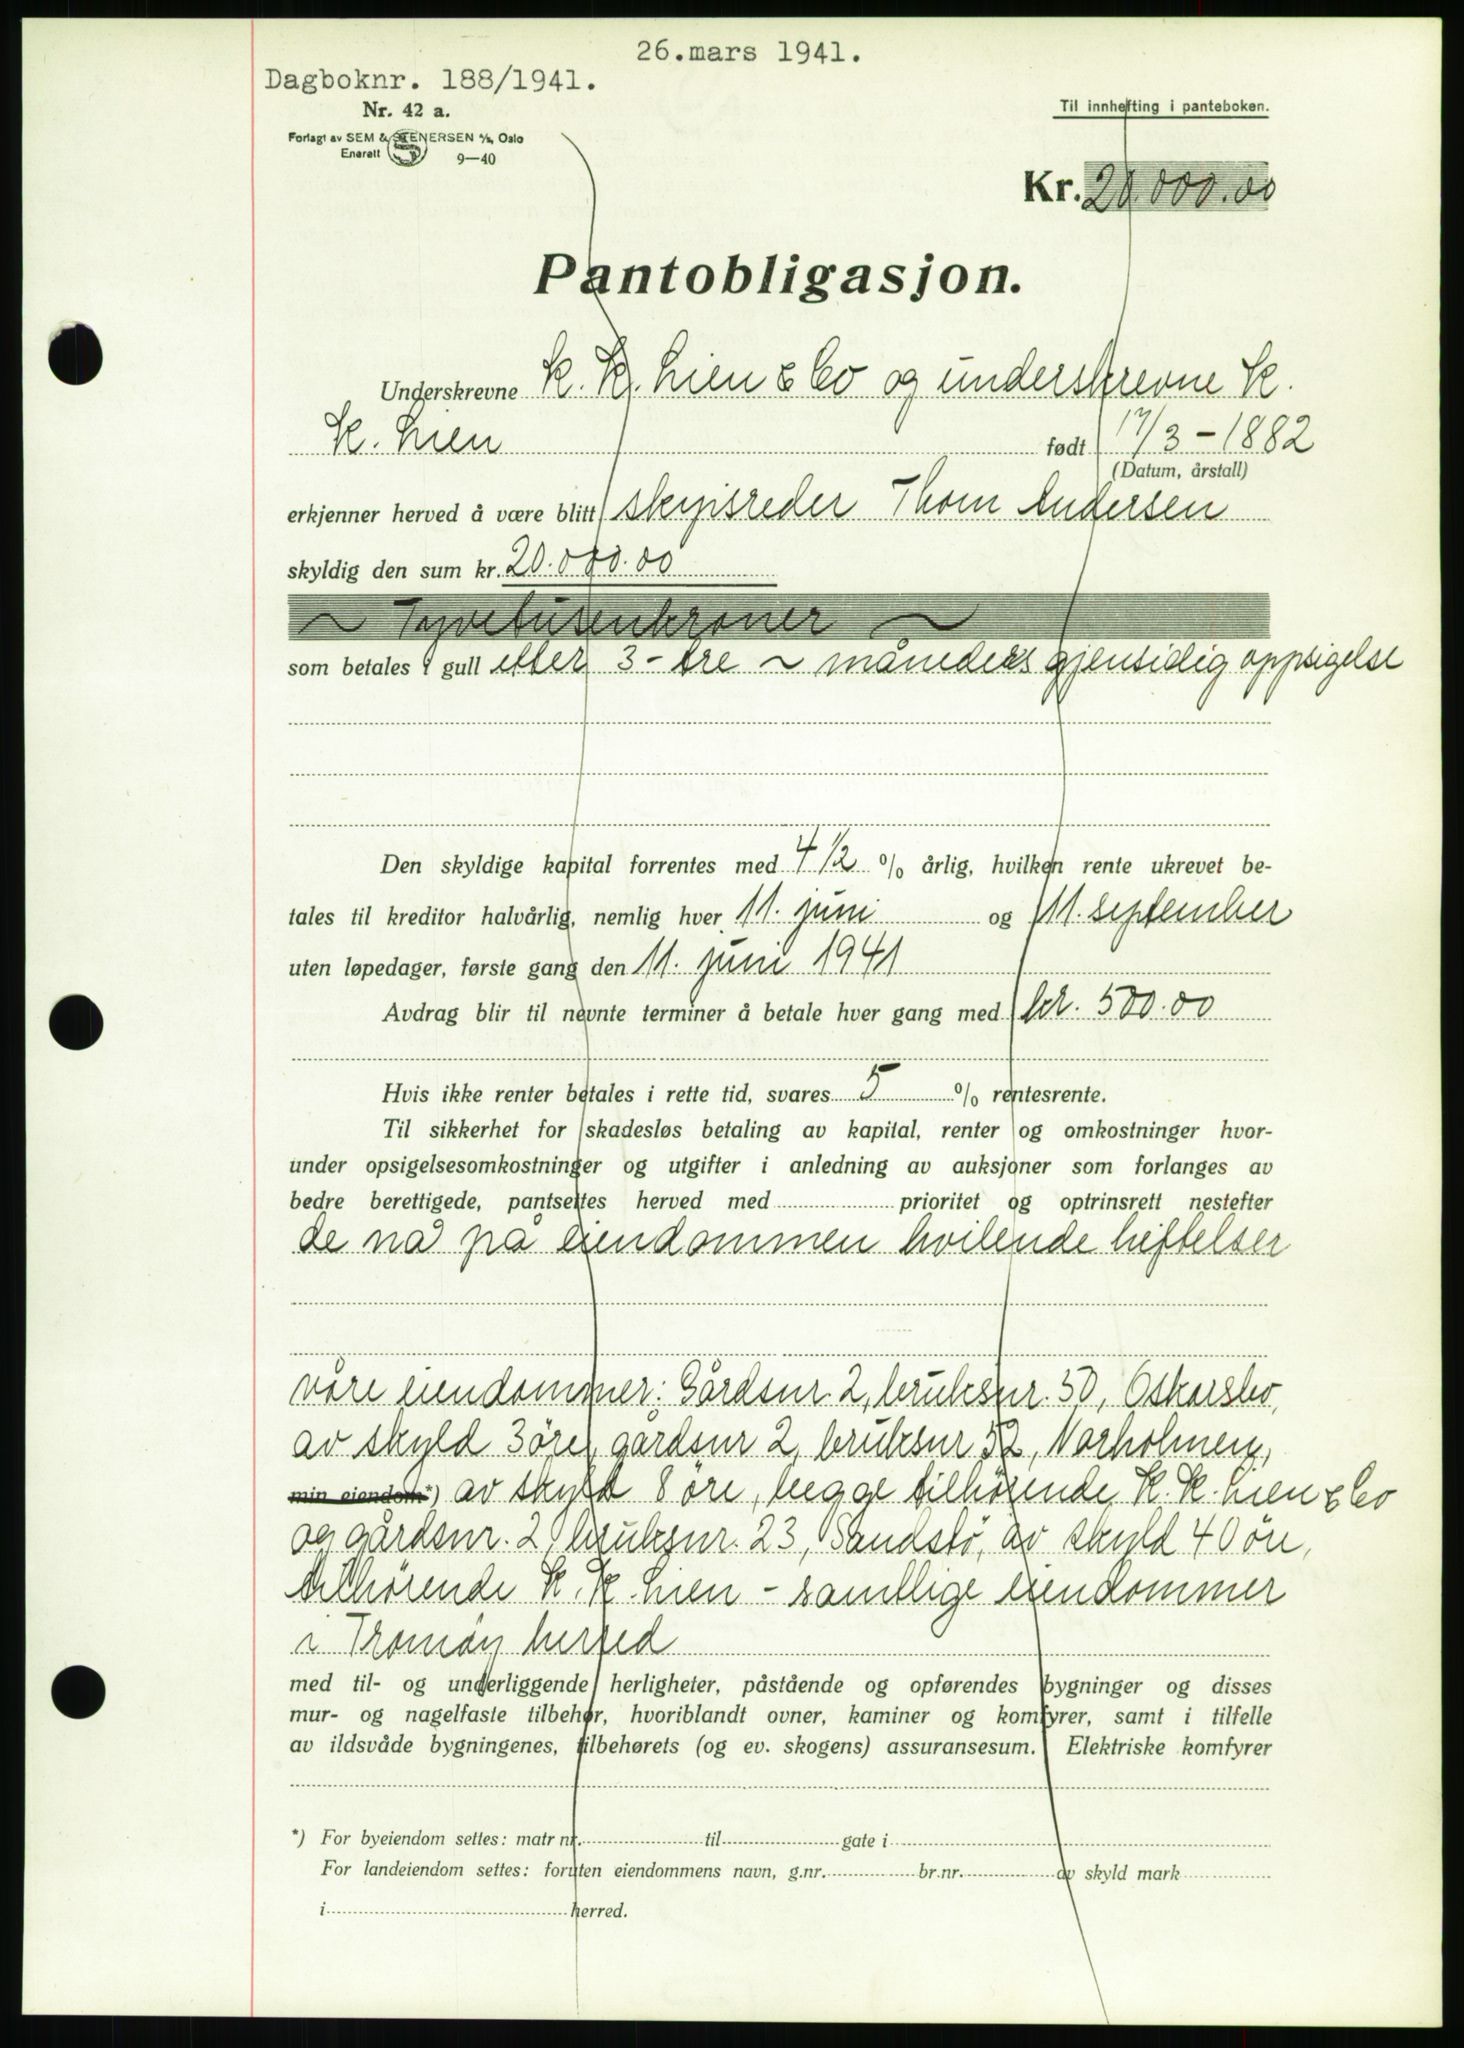 26.mars 1941.
Dagboknr. 188/1941.
Nr. 42 a.
Til innhefting i panteboken.
Forlagt av SEM & STENERSEN A/S, Oslo
Enerett 9—40
Kr. 20.000.00
Pantobligasjon.
Underskrevne K. K. Lien & Co og underskrevne K.
K. Lien født 17/3 - 1882
(Datum, årstall)
erkjenner herved å være blitt skipsreder Thom Andersen
skyldig den sum kr. 20.000.00
~ Tyvetusenkroner ~
som betales i gull efter 3 - tre ~ måneders gjensidig oppsigelse
Den skyldige kapital forrentes med 4 1/2 % årlig, hvilken rente ukrevet be-
tales til kreditor halvårlig, nemlig hver 11. juni og 11. september
uten løpedager, første gang den 11. juni 1941
Avdrag blir til nevnte terminer å betale hver gang med kr. 500.00
Hvis ikke renter betales i rette tid, svares 5 % rentesrente.
Til sikkerhet for skadesløs betaling av kapital, renter og omkostninger hvor-
under opsigelsesomkostninger og utgifter i anledning av auksjoner som forlanges av
bedre berettigede, pantsettes herved med prioritet og optrinsrett nestefter
de nå på eiendommen hvilende heftelser
våre eiendommer: Gårdsnr. 2, bruksnr. 50, Oskarsbo,
av skyld 3 øre, gårdsnr 2, bruksnr 52, Narholmen,
min eiendom*) av skyld 8 øre, begge tilhørende K. K. Lien & Co
og gårdsnr. 2, bruksnr. 23, Sandstø, av skyld 40 øre,
tilhørende K. K. Lien - samtlige eiendommer
i Tromøy herred
med til- og underliggende herligheter, påstående og opførendes bygninger og disses
mur- og nagelfaste tilbehør, hvoriblandt ovner, kaminer og komfyrer, samt i tilfelle
av ildsvåde bygningenes, tilbehørets (og ev. skogens) assuransesum. Elektriske komfyrer
*) For byeiendom settes: matr nr. til gate i
For landeiendom settes: foruten eiendommens navn, g.nr. br.nr. av skyld mark
i herred.